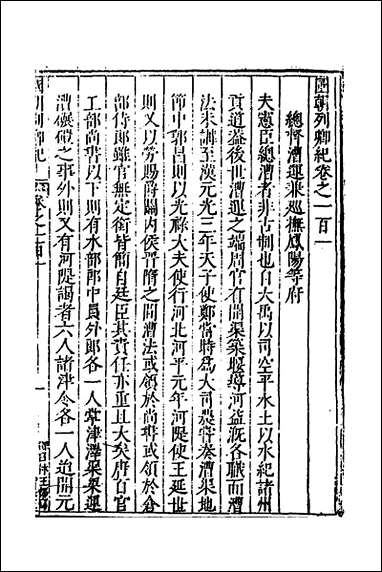 國朝列卿紀卷之一百一
總督漕運兼巡撫鳳陽等府
夫憲臣總漕者非古制也自大禹以司空平水土以水紀諸州
貢道蓋後世漕運之端周官有開渠築堰導河益漑各職而漕
法未講至漢元光三年天子使鄭當時為大司農嘗奏漕渠地
節中郭昌則以光祿大夫使行河北河平元年河隄使王延世
則又以勞賜爵關內侯晉隋之間漕法或領於尚書或領於倉
部侍郎雖官無定銜皆簡自廷臣其責任亦重且大矣府自官
工部尚書以下則有水部郎中員外郎各一人掌津濟渠梁運
漕碾磑之事外則又有河隄謁者六人諸津令各一人迨開元
國朝列卿紀 卷之一百一 一